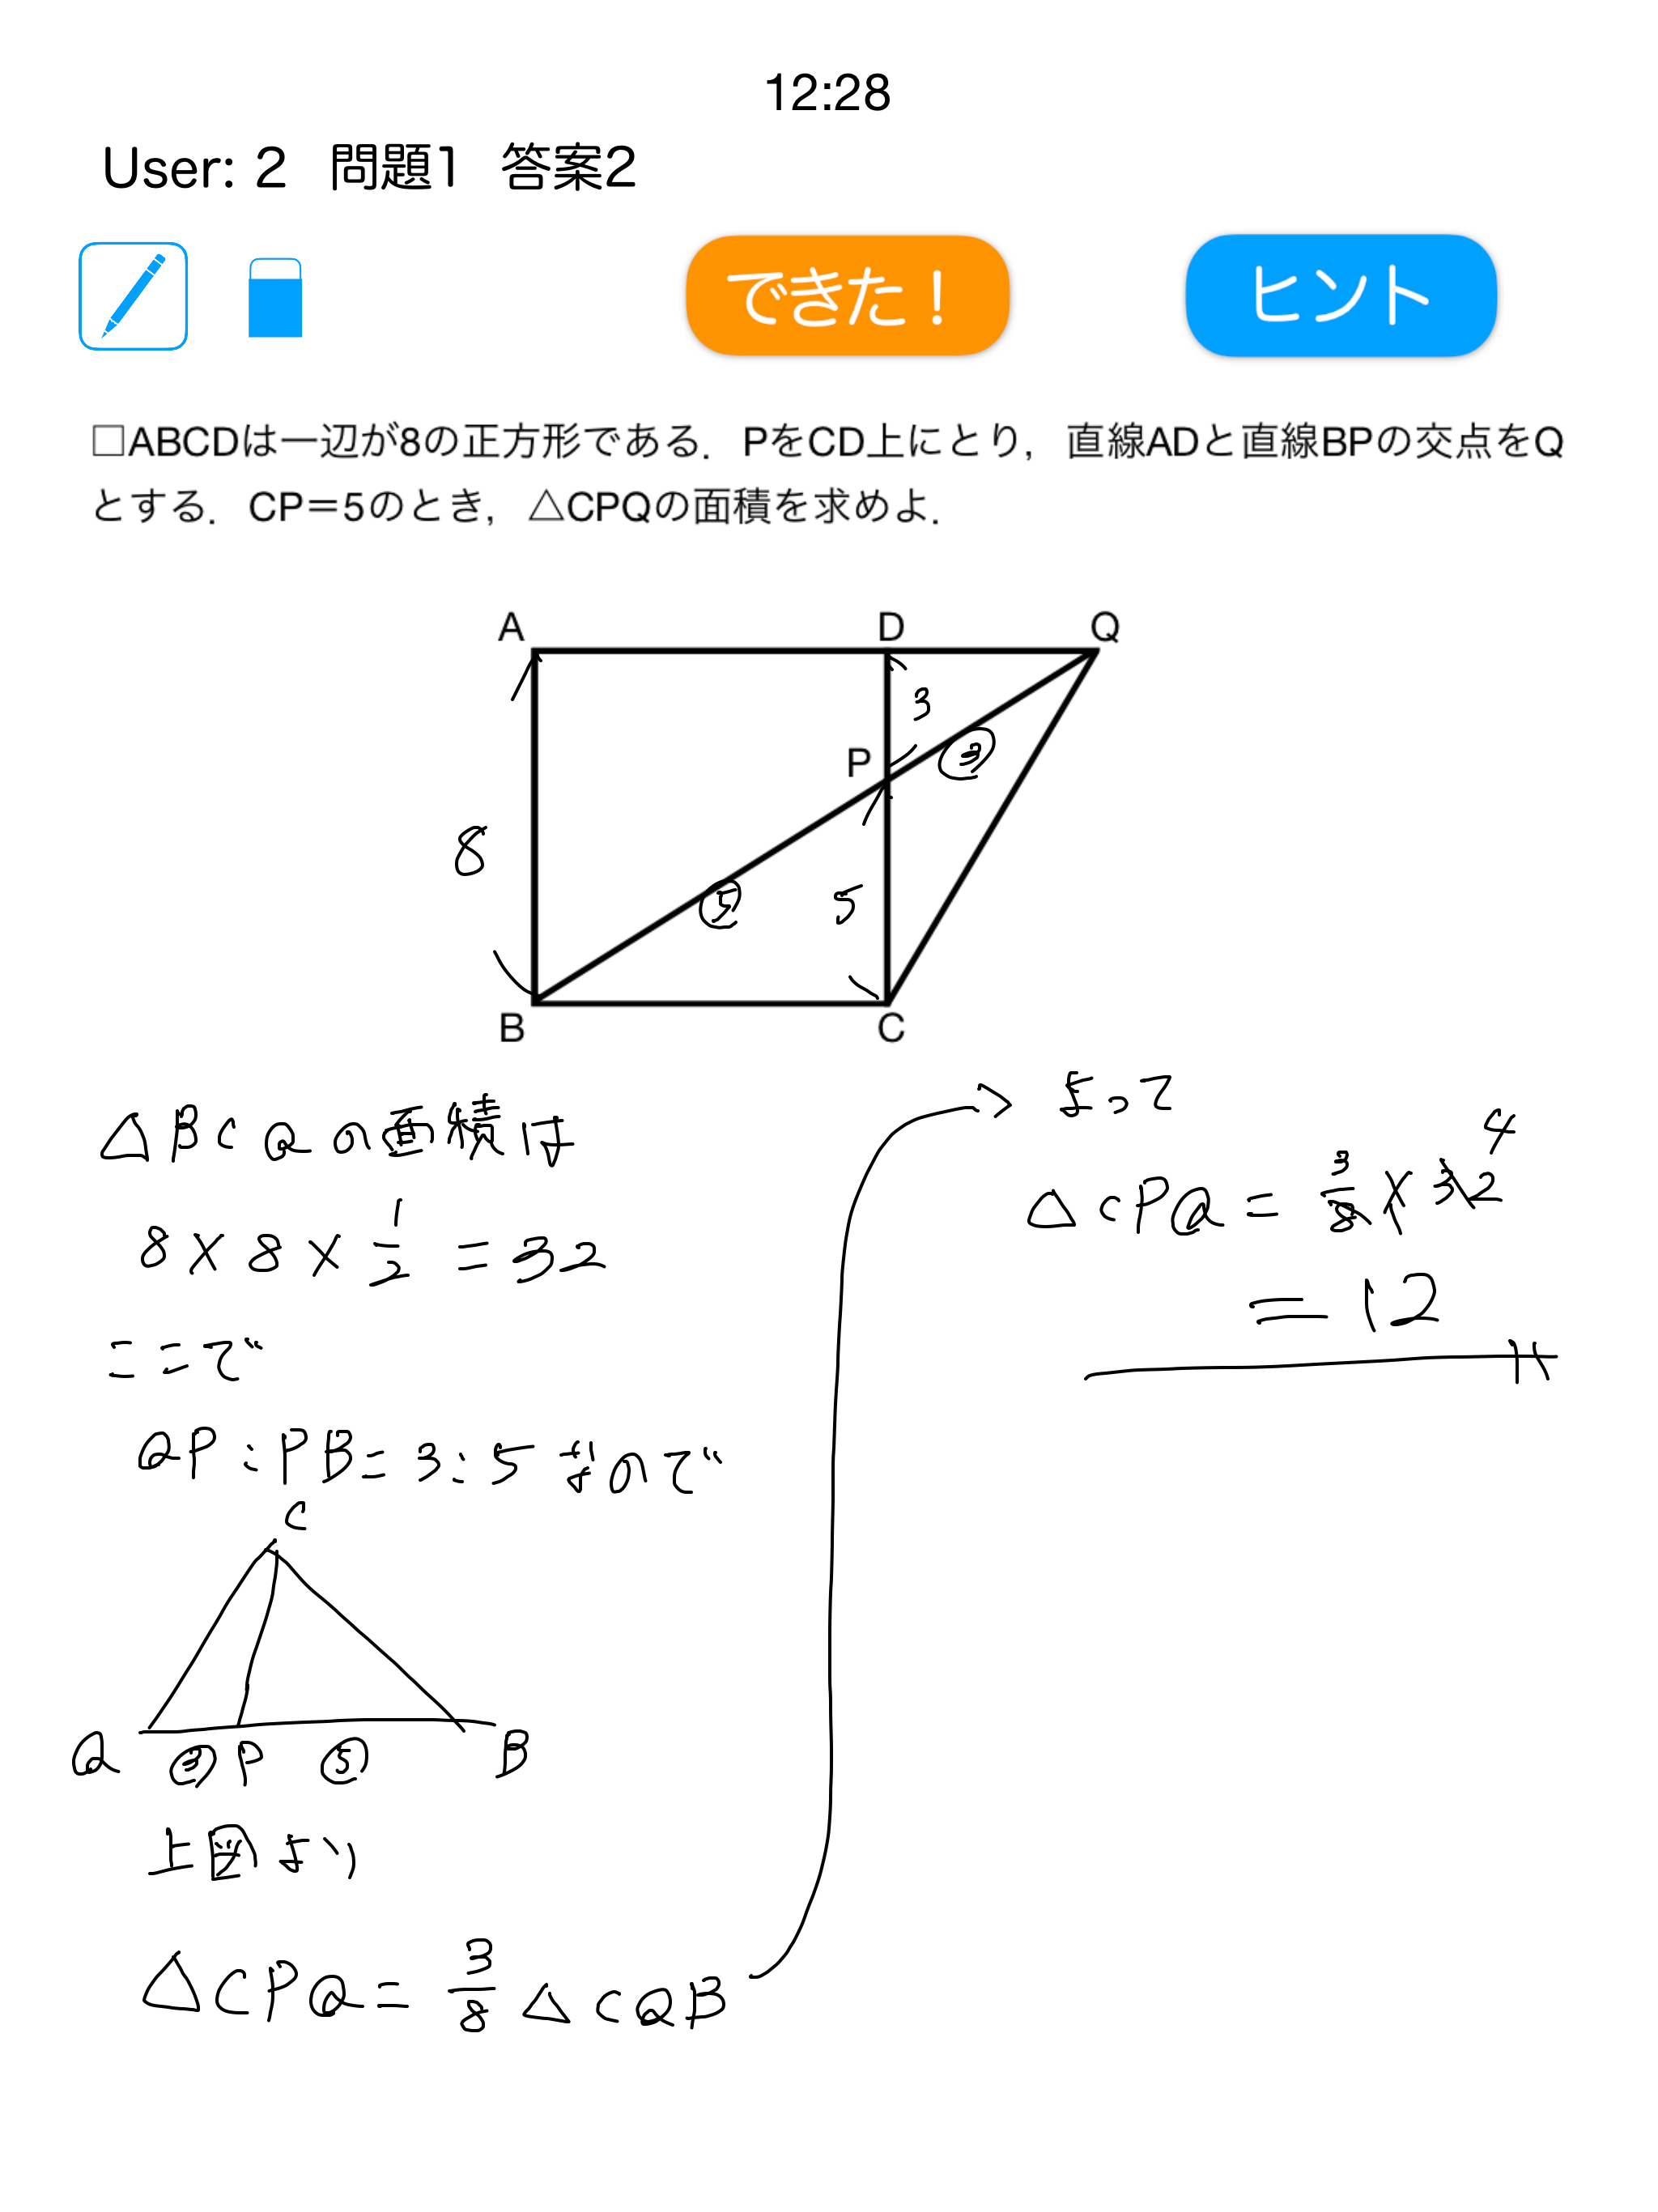 12:28
User: 2 問題1 答案2
できた！ ヒント
□ABCDは一辺が8の正方形である．PをCD上にとり，直線ADと直線BPの交点をQ
とする．CP＝5のとき，△CPQの面積を求めよ．
A D Q
3
P ③
8 ⑤ 5
B C
△BCQの面積は
8×8×1/2 =32
ここで
QP:PB=3:5なので
C
Q ③ P ⑤ B
上図より
△CPQ= 3/8 △CQB
よって
4
△CPQ = 3/8 × 32
=12